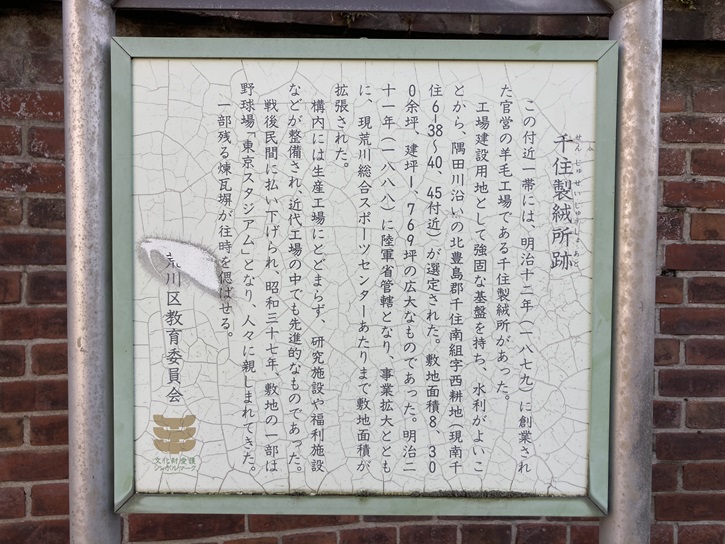 千住製絨所跡
せんじゅせいじゅうしょあと
この付近一帯には、明治十二年（一八七九）に創業され
た官営の羊毛工場である千住製絨所があった。
工場建設用地として強固な基盤を持ち、水利がよいこ
とから、隅田川沿いの北豊島郡千住南組字西耕地（現南千
住6-38〜40、45付近）が選定された。敷地面積8、30
0余坪、建坪1、769坪の広大なものであった。明治二
十一年（一八八八）に陸軍省管轄となり、事業拡大ととも
に、現荒川総合スポーツセンターあたりまで敷地面積が
拡張された。
構内には生産工場にとどまらず、研究施設や福利施設
などが整備され、近代工場の中でも先進的なものであった。
戦後民間に払い下げられ、昭和三十七年、敷地の一部は
野球場「東京スタジアム」となり、人々に親しまれてきた。
一部残る煉瓦塀が往時を偲ばせる。
荒川区教育委員会
文化財愛護
シンボルマーク